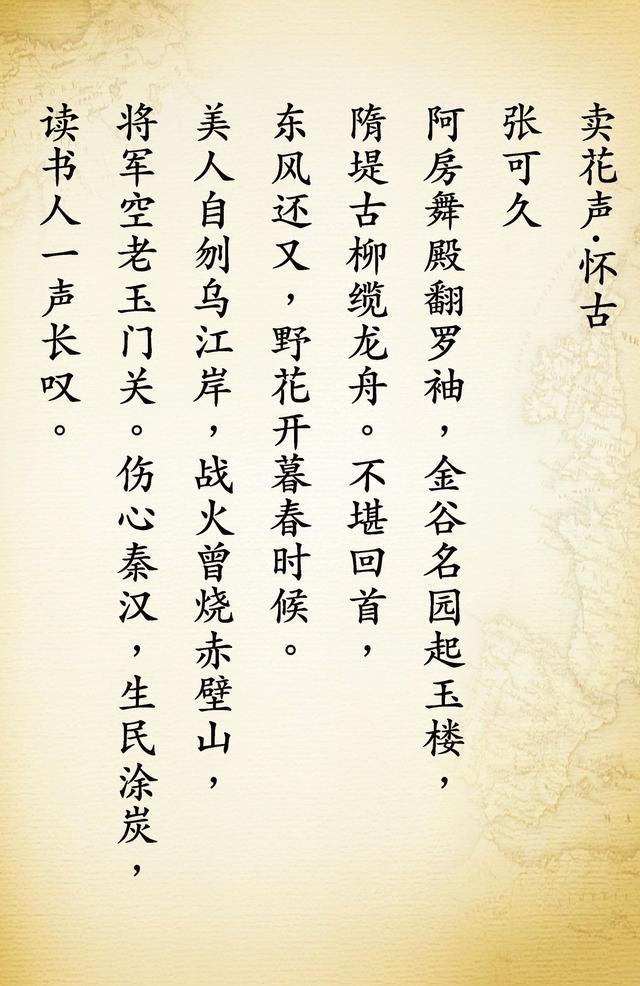 卖花声·怀古
张可久
阿房舞殿翻罗袖，金谷名园起玉楼，
隋堤古柳缆龙舟。不堪回首，
东风还又，野花开暮春时候。
美人自刎乌江岸，战火曾烧赤壁山，
将军空老玉门关。伤心秦汉，生民涂炭，
读书人一声长叹。